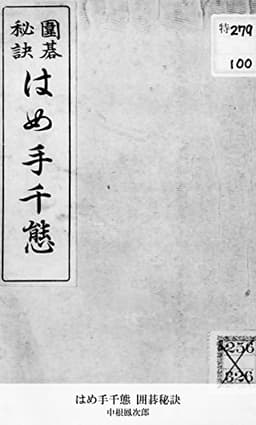 圍碁
秘訣
はめ手千態
特279
100
256
826
はめ手千態 囲碁秘訣
中根鳳次郎